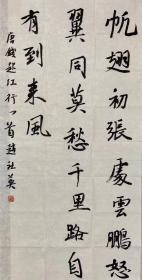 帆翅初張處雲鵬怒
翼同莫愁千里路自
有到來風
唐錢起江行一首趙社英